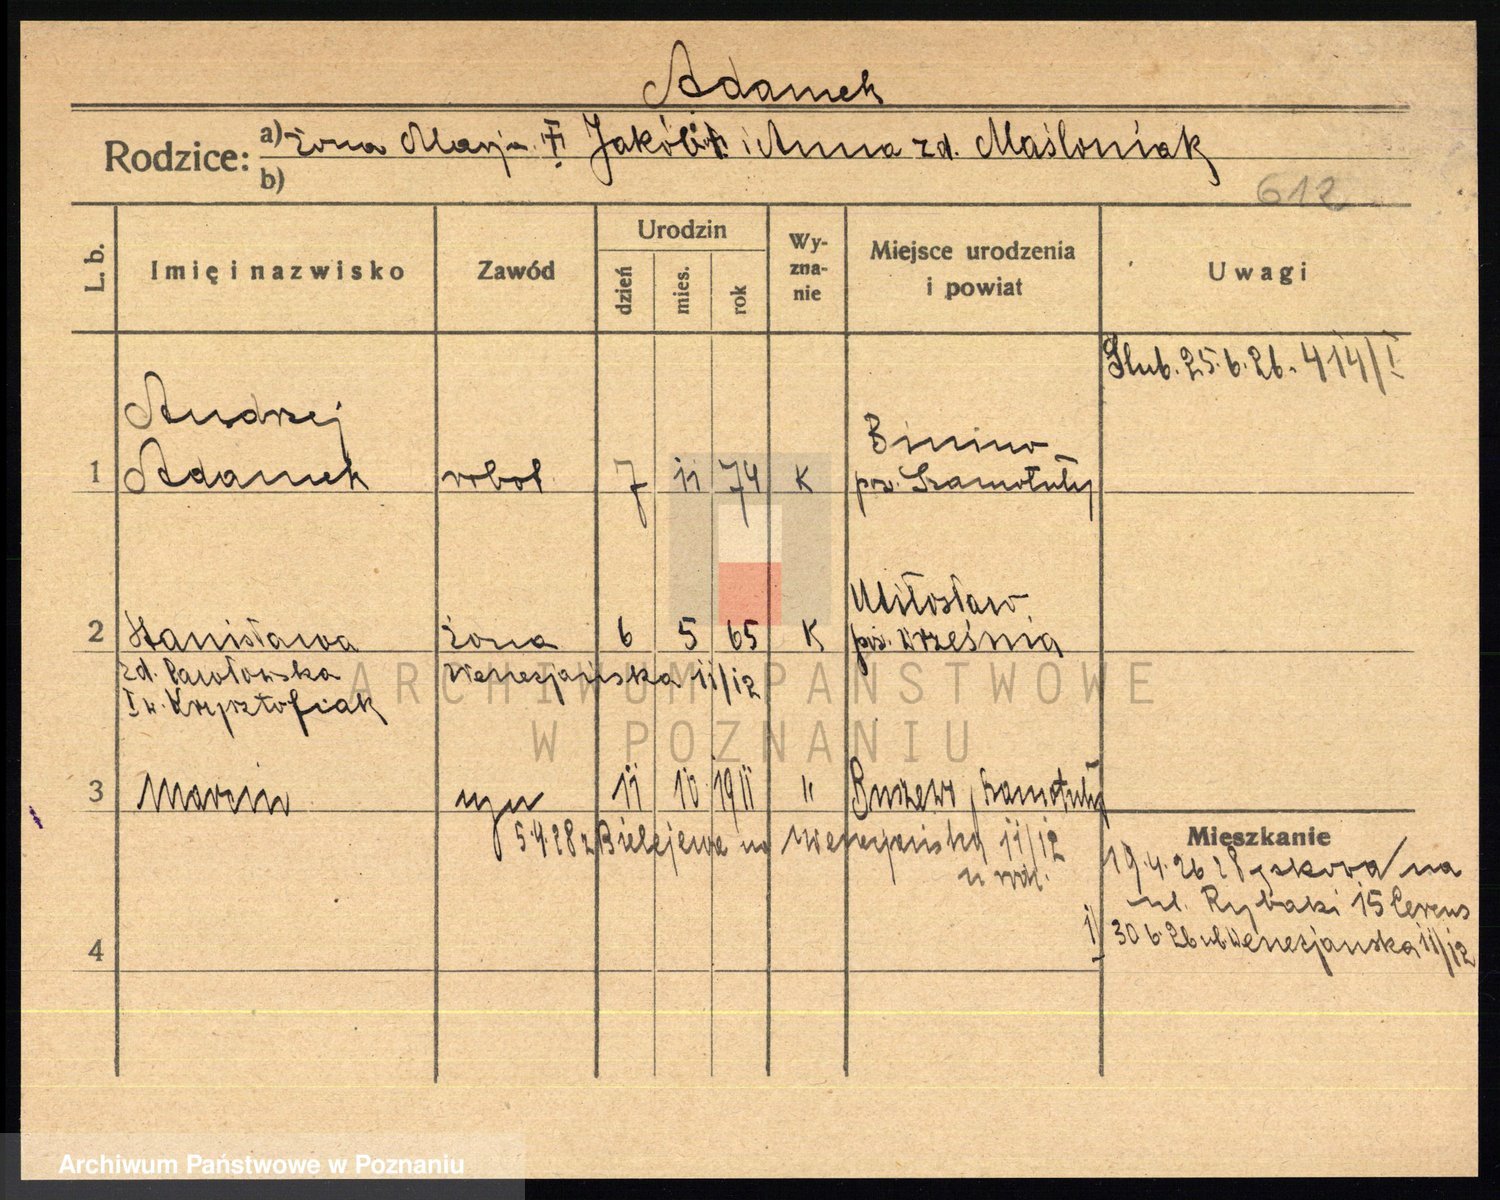 Adamek
Rodzice: a) żona Marja I Jakób i Anna zd. Maśloniak
b)
612
L. b.
Imię i nazwisko
Zawód
Urodzin
dzień
mies.
rok
Wy-
zna-
nie
Miejsce urodzenia
i powiat
Uwagi
Ślub. 25.6.26. 414/I
Andrzej
Binino
1 Adamek robot 7 11 74 K pow. Szamotuły
Miłosław
2 Stanisława żona 6 5 65 K pow. Września
zd. Pawłowska Wenecjańska 11/12
I w. Krzysztofiak
3 Marcin syn 11 10 1911 " Buszewo, Szamotuły
5.4.28 z Bielejewa na Wenecjańską 11/12
Mieszkanie
19.4.26 na
ul. Rybaki 15
1) 30 6 26 ul Wenecjańska 11/12
4
ARCHIWUM PAŃSTWOWE
W POZNANIU
Archiwum Państwowe w Poznaniu